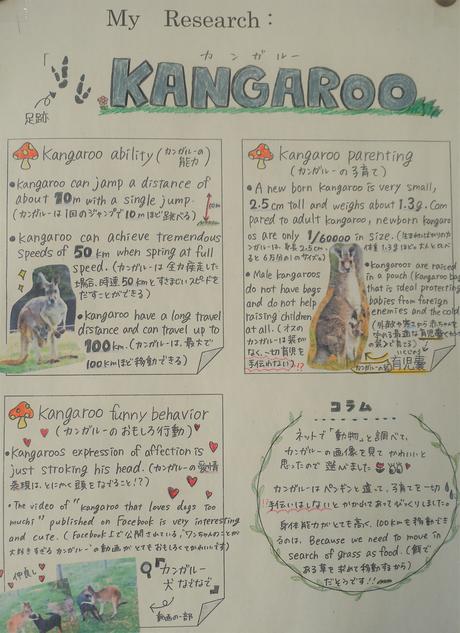 My Research:
カンガルー
KANGAROO
足跡
Kangaroo ability (カンガルーの能力)
• Kangaroo can jump a distance of
about 10m with a single jump.
(カンガルーは1回のジャンプで10mほど跳べる)
• Kangaroo can achieve tremendous
speeds of 50 km when spring at full
speed. (カンガルーは全力疾走した
場合、時速50kmとすさまじいスピードを
だすことができる)
• Kangaroo have a long travel
distance and can travel up to
100km. (カンガルーは、最大で
100kmほど移動できる)
Kangaroo parenting
(カンガルーの子育て)
• A new born kangaroo is very small,
2.5cm tall and weighs about 1.3g. Com
pared to adult kangaroo, newborn kangaro
os are only 1/60000 in size. (生まれたばかりのカ
ンガルーは、身長2.5cm、体重1.3gほど。大人と比べ
ると6万分の1のサイズ。)
• Male kangaroos
do not have bags
and do not help
raising children
at all. (オスの
カンガルーは袋がな
く、一切育児を
手伝わない)!?
• Kangaroos are raised
in a pouch (Kangaroo bag)
that is ideal protecting
babies from foreign
enemies and the cold
育児嚢
Kangaroo funny behavior
(カンガルーのおもしろ行動)
• Kangaroos expression of affection is
just stroking his head. (カンガルーの愛情
表現は、とにかく頭をなでること!?)
• The video of "kangaroo that loves dogs too
much" published on Facebook is very interesting
and cute. (Facebook上で公開されている、"ワンちゃんのことが
大好きすぎるカンガルー"の動画がとてもおもしろくてかわいいです)
仲良し
カンガルー
犬 なでなで
動画の一部
コラム
ネットで「動物」と調べて、
カンガルーの画像を見てかわいいと
思ったので選びました
カンガルーはペンギンと違って、子育てを一切
手伝いはしないとかかれてあってびっくりしました。
身体能力がとても高く、100kmを移動でき
るのは、Because we need to move in
search of grass as food. (餌で
ある草を求めて移動するから)
だそうです!!